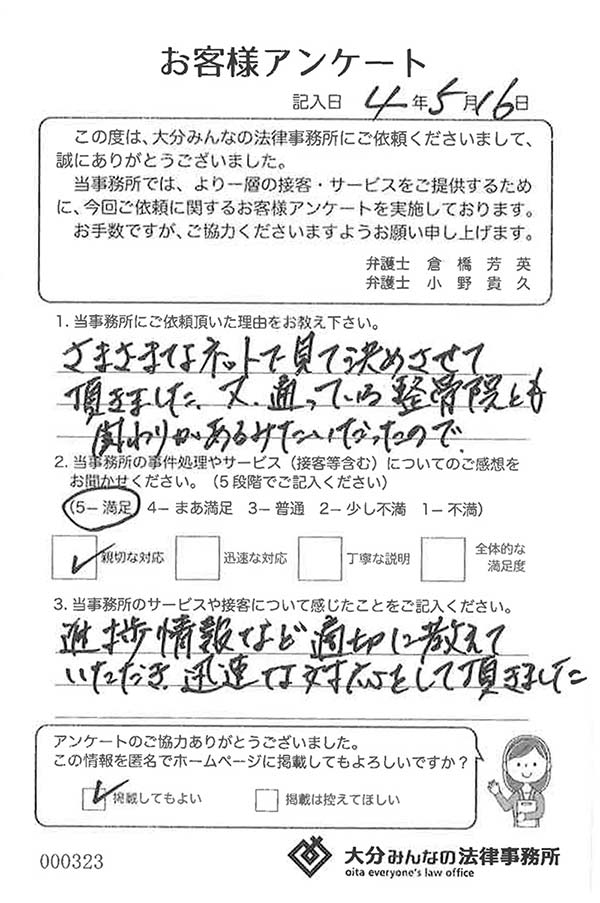 お客様アンケート
記入日 4年5月16日
この度は、大分みんなの法律事務所にご依頼くださいまして、
誠にありがとうございました。
当事務所では、より一層の接客・サービスをご提供するため
に、今回ご依頼に関するお客様アンケートを実施しております。
お手数ですが、ご協力くださいますようお願い申し上げます。
弁護士 倉橋芳英
弁護士 小野貴久
1. 当事務所にご依頼頂いた理由をお教え下さい。
さまさまなネットで見て決めさせて
頂きました、又、通っている整骨院とも
関わりがあるみたいだったので
2. 当事務所の事件処理やサービス（接客等含む）についてのご感想を
お聞かせください。（5段階でご記入ください）
（5－満足 4－まあ満足 3－普通 2－少し不満 1－不満）
親切な対応 迅速な対応 丁寧な説明 全体的な
満足度
3. 当事務所のサービスや接客について感じたことをご記入ください。
進捗情報など適切に教えて
いただき、迅速な対応をして頂きました
アンケートのご協力ありがとうございました。
この情報を匿名でホームページに掲載してもよろしいですか？
掲載してもよい 掲載は控えてほしい
000323
大分みんなの法律事務所
oita everyone's law office